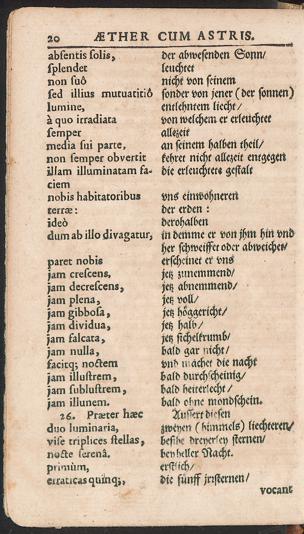 20 ÆTHER CUM ASTRIS.
absentis solis, der abwesenden Sonn/
splendet leuchtet
non suô nicht von seinem
sed illius mutuatitiô sonder von jener (der sonnen)
lumine, entlehntem liecht/
à quo irradiata von welchem er erleuchtet
semper allezeit
media sui parte, an seinem halben theil/
non semper obvertit kehret nicht allezeit entgegen
illam illuminatam fa- die erleuchtete gestalt
ciem
nobis habitatoribus vns einwohneren
terræ: der erden:
ideò derohalben
dum ab illo divagatur, in demme er von jhm hin vnd
her schweiffet oder abweichet/
paret nobis erscheinet er vns
jam crescens, jetz zunemmend/
jam decrescens, jetz abnemmend/
jam plena, jetz voll/
jam gibbosa, jetz höggericht/
jam dividua, jetz halb/
jam falcata, jetz sichelkrumb/
jam nulla, bald gar nicht/
facitq; noctem vnd machet die nacht
jam illustrem, bald durchscheinig/
jam sublustrem, bald heiterlecht/
jam illunem. bald ohne mondschein.
26. Præter hæc Aussert diesen
duo luminaria, zweyen (himmels) liechteren/
vise triplices stellas, besihe dreyerley sternen/
nocte serenâ. bey heller Nacht.
primùm, erstlich/
erraticas quinq;, die fünff jrrsternen/
vocant